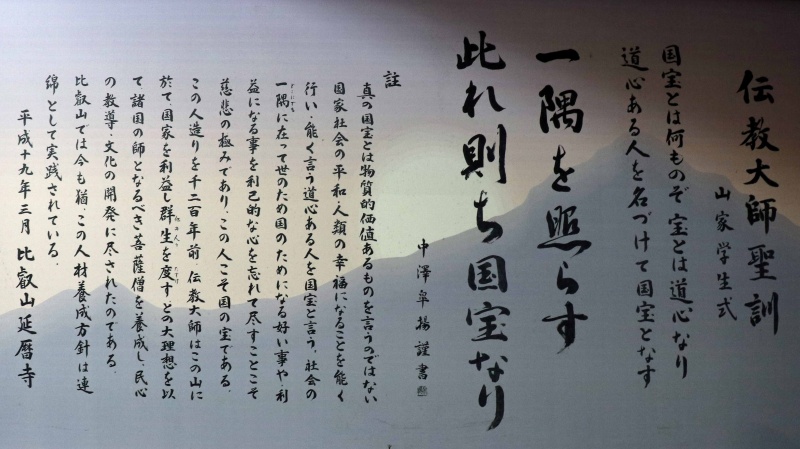 伝教大師聖訓
山家学生式
国宝とは何ものぞ 宝とは道心なり
道心ある人を名づけて国宝となす
一隅を照らす
此れ則ち国宝なり
中澤皐揚謹書
註
真の国宝とは物質的価値あるものを言うのではない
国家社会の平和・人類の幸福になることを能く
行い・能く言う道心ある人を国宝と言う。社会の
一隅に在って世のため国のためになる好い事や・利
益になる事を利己的な心を忘れて尽すことこそ
慈悲の極みであり、この人こそ国の宝である。
この人造りを千二百年前、伝教大師はこの山に
於て、国家を利益し群生を度す、との大理想を以
て諸国の師となるべき菩薩僧を養成し、民心
の教導・文化の開発に尽されたのである。
比叡山では今も猶、この人材養成方針は連
綿として実践されている。
平成十九年三月 比叡山延暦寺